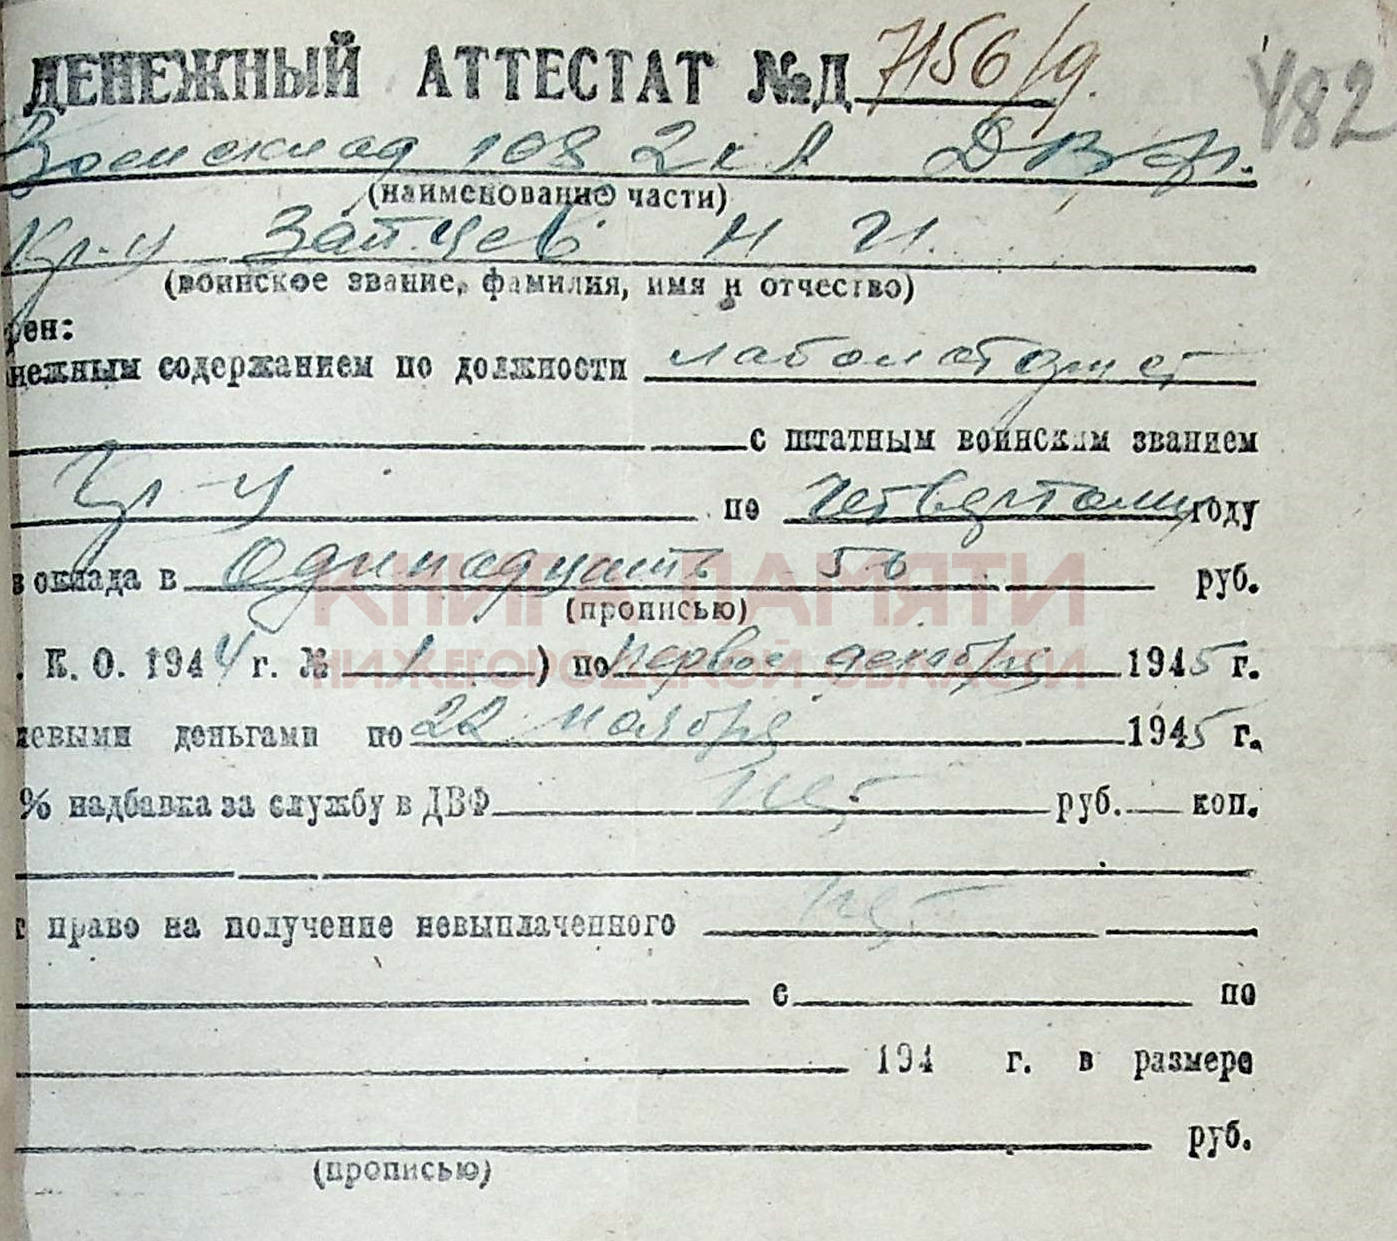 ДЕНЕЖНЫЙ АТТЕСТАТ №Д 7156/9.
482
Военсклад 108 2 к А ДВФ.
(наименование части)
Кр-ц Зайцев Н И.
(воинское звание, фамилия, имя и отчество)
рен:
нежным содержанием по должности
с штатным воинским званием
Кр-ц по четвертому году
в оклада в одинадцать 50 руб.
(прописью)
. К. О. 1944 г. № 1 ) по первое декабря 1945 г.
левыми деньгами по 22 ноября 1945 г.
% надбавка за службу в ДВФ нет руб. коп.
т право на получение невыплаченного нет
с по
194 г. в размере
руб.
(прописью)
КНИГА ПАМЯТИ
НИЖЕГОРОДСКОЙ ОБЛАСТИ